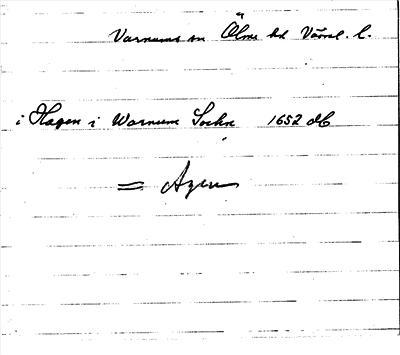 Varnums sn Ölme hd Värml. l.
i Hagen i Warnum Sochn 1652 db
= Agen